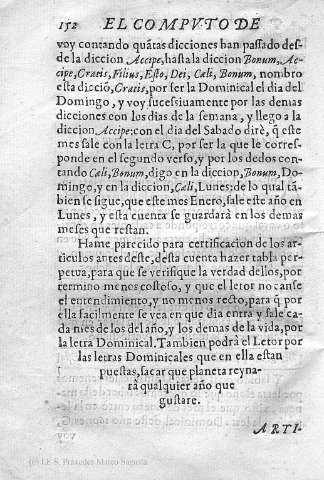 152 EL COMPVTO DE
voy contando quãtas dicciones han passado des-
de la diccion Accipe, hasta la diccion Bonum, Ac-
cipe, Gratis, Filius, Esto, Dei, Cæli, Bonum, nombro
esta dicciõ, Gratis, por ser la Dominical el dia del
Domingo, y voy sucessiuamente por las demas
dicciones con los dias de la semana, y llego a la
diccion Accipe: con el dia del Sabado dirè, q̃ este
mes sale con la letra C, por ser la que le corres-
ponde en el segundo verso, y por los dedos con-
tando Cæli, Bonum, digo en la diccion, Bonum, Do-
mingo, y en la diccion, Cæli, Lunes: de lo qual tã-
bien se sigue, que este mes Enero, sale este año en
Lunes, y esta cuenta se guardarà en los demas
meses que restan.
Hame parecido para certificacion de los ar-
ticulos antes deste, desta cuenta hazer tabla per-
petua, para que se verifique la verdad dellos, por
termino menos costoso, y que el letor no canse
el entendimiento, y no menos recto, para q̃ por
ella facilmente se vea en que dia entra y sale ca-
da mes de los del año, y los demas de la vida, por
la letra Dominical. Tambien podrà el Letor por
las letras Dominicales que en ella estan
puestas, sacar que planeta reyna-
rà qualquier año que
gustare.
ARTI-
(c) I.E.S. Práxedes Mateo Sagasta